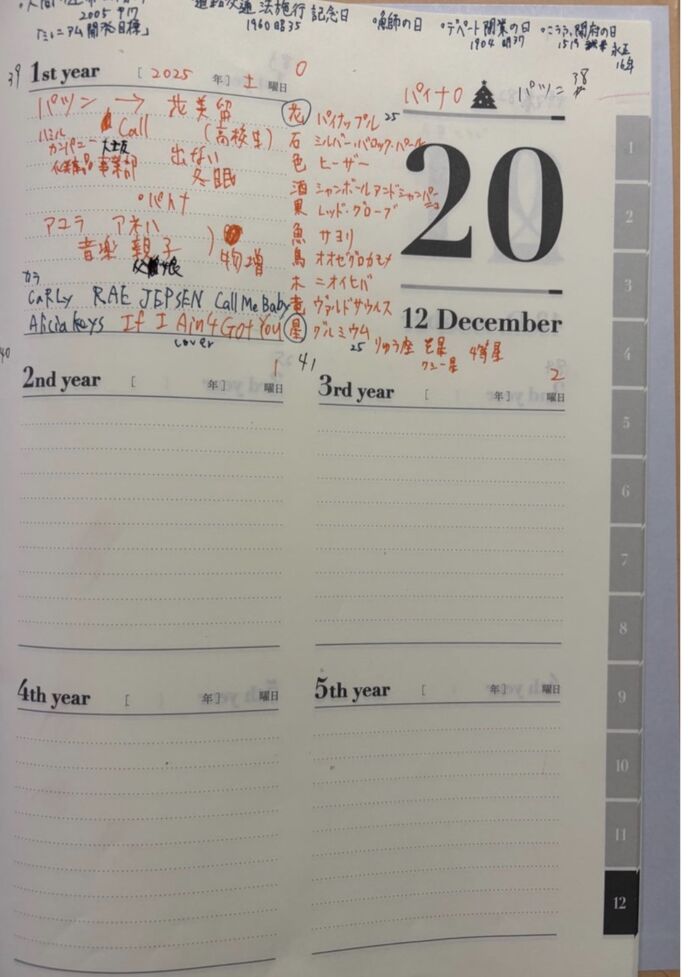 道路交通法施行記念日 ・漁師の日 ・デパート開業の日 ・こうふ開府の日
2005 9/17 1960 昭35 1904 明37 1519 永正
「ミレニアム開発目標」 16年
39 1st year [ 2025 年] 土 曜日 0
パイナO パツン 38
パツン → 花美留
Call (高校生)
カンパニー
事業部 出ない
冬眠
・パトナ
アユラ アネハ
音楽 親子 物増
カラ
CaRLy RAE JEPSEN Call Me Baby
Alicia Keys If I Ain't Got You
cover
花 パイナップル 25
石 シルバー・バロック・パール
色 ヒーザー
酒 シャンボールアンドシャンパーニュ
果 レッド・グローブ
魚 サヨリ
鳥 オオセグロカモメ
木 ニオイヒバ
竜 ヴァルドサウルス
星 グルミウム
25 りゅう座 4等星
20
12 December
40 2nd year [ 年] 1 曜日
41 3rd year [ 年] 2 曜日
4th year [ 年] 曜日
5th year [ 年] 曜日
1
2
3
4
5
6
7
8
9
10
11
12